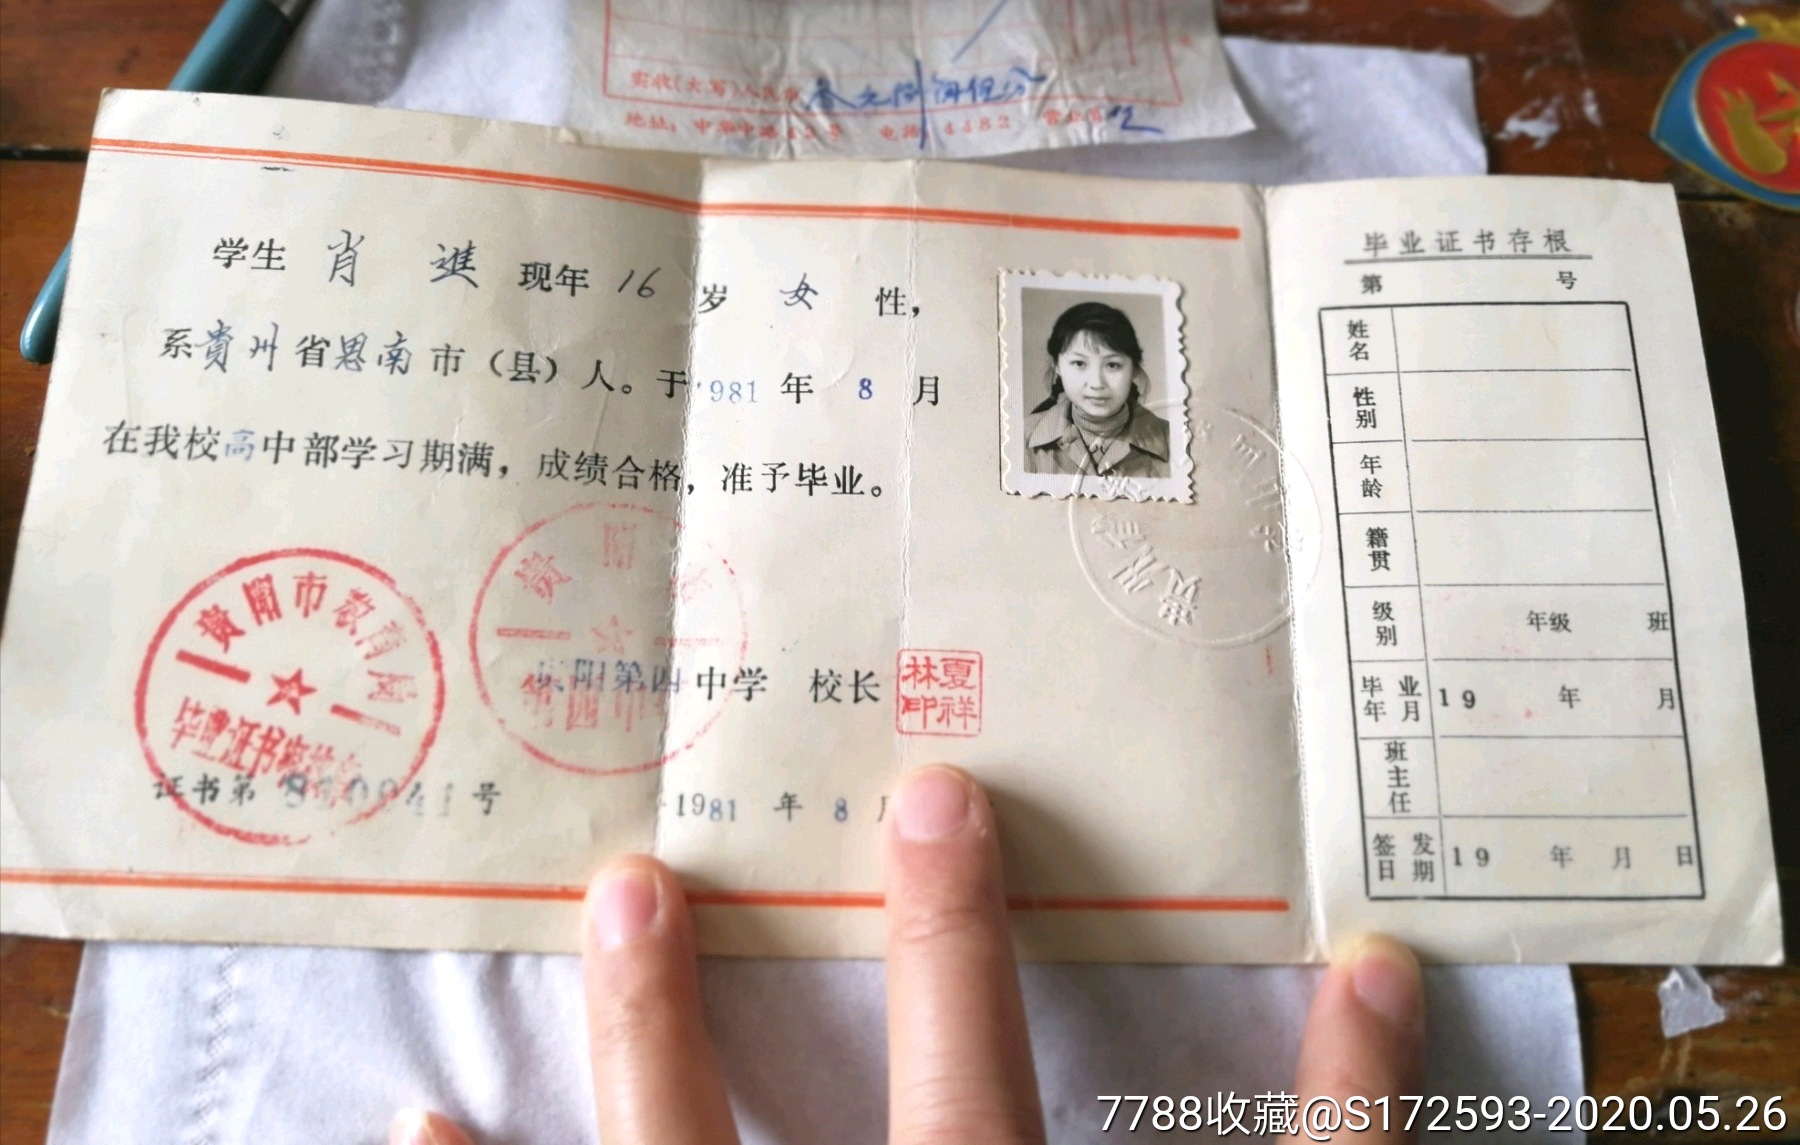 实收(大写)人民币叁元
地址：中华中路42号 电话：4482 营业员
学生 肖 進 现年 16 岁 女 性，
系貴州省思南市（县）人。于1981年 8 月
在我校高中部学习期满，成绩合格，准予毕业。
贵阳市教育局
毕业证书
贵阳
贵阳第四中学 校长
夏祥林印
证书第 号
1981 年 8 月
毕业证书存根
第 号
姓名
性别
年龄
籍贯
级别 年级 班
毕业年月 19 年 月
班主任
签发日期 19 年 月 日
7788收藏@S172593-2020.05.26